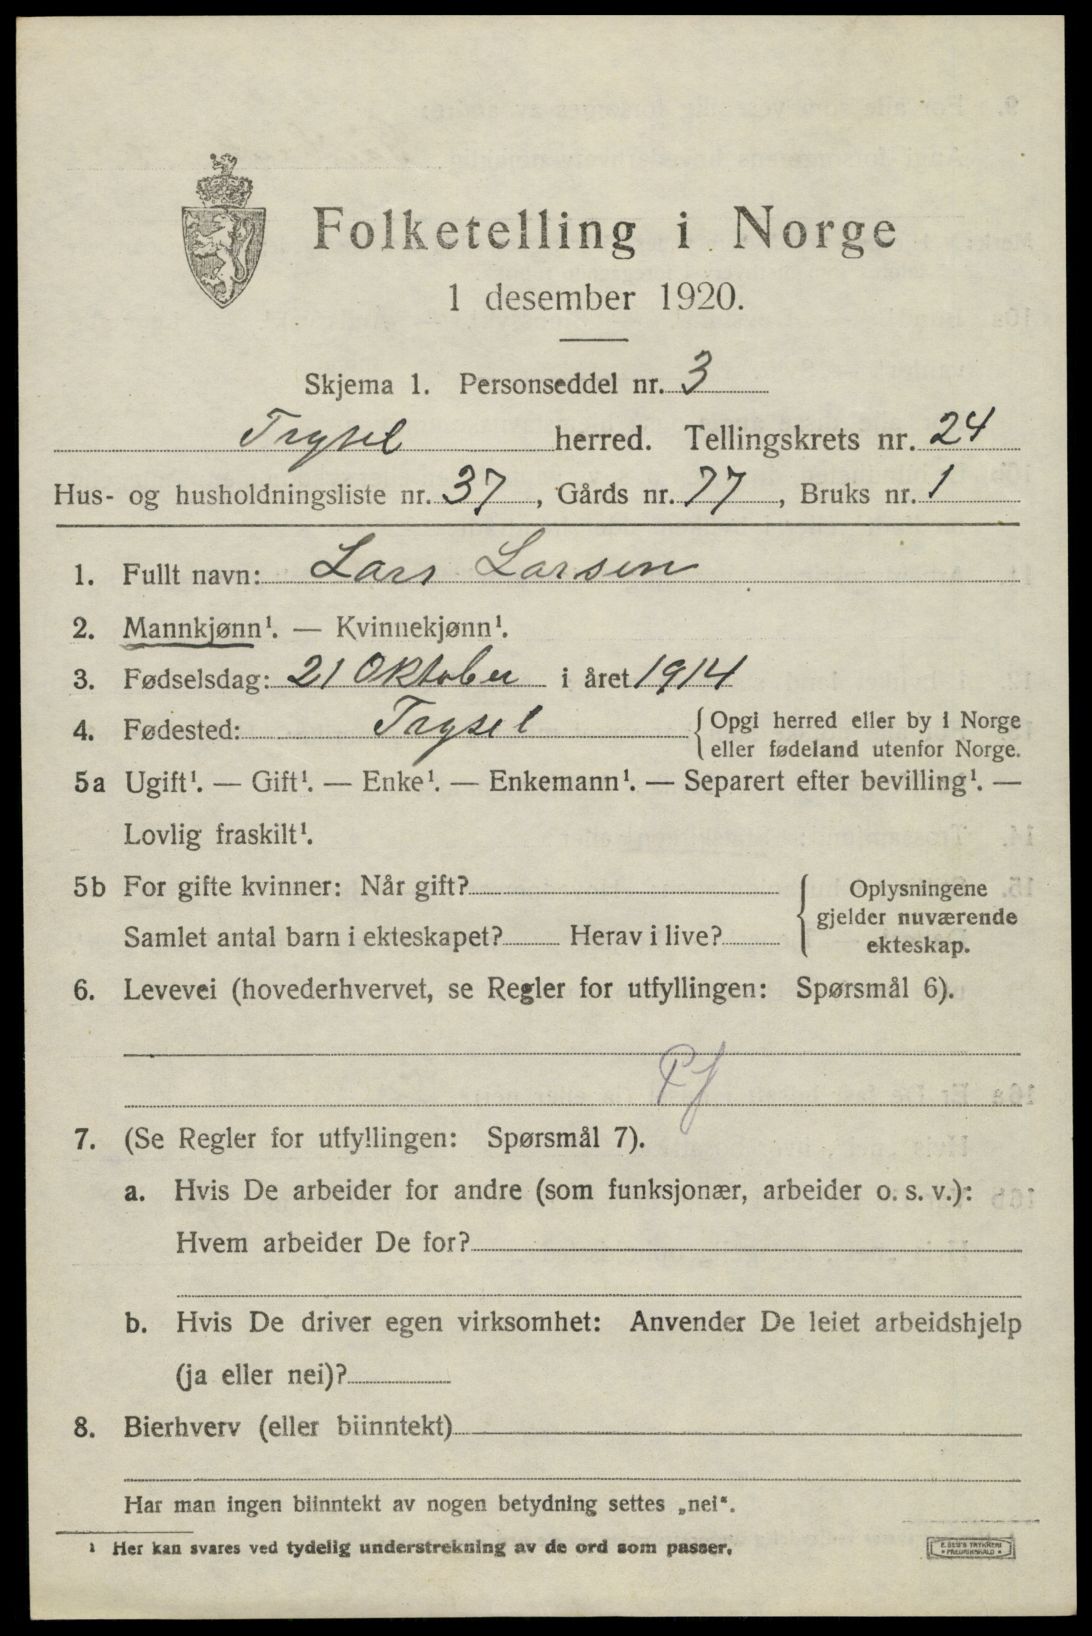 Folketelling i Norge
1 desember 1920.
Skjema 1. Personseddel nr. 3
Trysil herred. Tellingskrets nr. 24
Hus- og husholdningsliste nr. 37, Gårds nr. 77, Bruks nr. 1
1. Fullt navn: Lars Larsen
2. Mannkjønn¹. — Kvinnekjønn¹.
3. Fødselsdag: 21 Oktober i året 1914
4. Fødested: Trysil { Opgi herred eller by i Norge
eller fødeland utenfor Norge.
5a Ugift¹. — Gift¹. — Enke¹. — Enkemann¹. — Separert efter bevilling¹. —
Lovlig fraskilt¹.
5b For gifte kvinner: Når gift?
Samlet antal barn i ekteskapet? Herav i live?
{ Oplysningene
gjelder nuværende
ekteskap.
6. Levevei (hovederhvervet, se Regler for utfyllingen: Spørsmål 6).
7. (Se Regler for utfyllingen: Spørsmål 7).
a. Hvis De arbeider for andre (som funksjonær, arbeider o. s. v.):
Hvem arbeider De for?
b. Hvis De driver egen virksomhet: Anvender De leiet arbeidshjelp
(ja eller nei)?
8. Bierhverv (eller biinntekt)
Har man ingen biinntekt av nogen betydning settes „nei“.
¹ Her kan svares ved tydelig understrekning av de ord som passer.